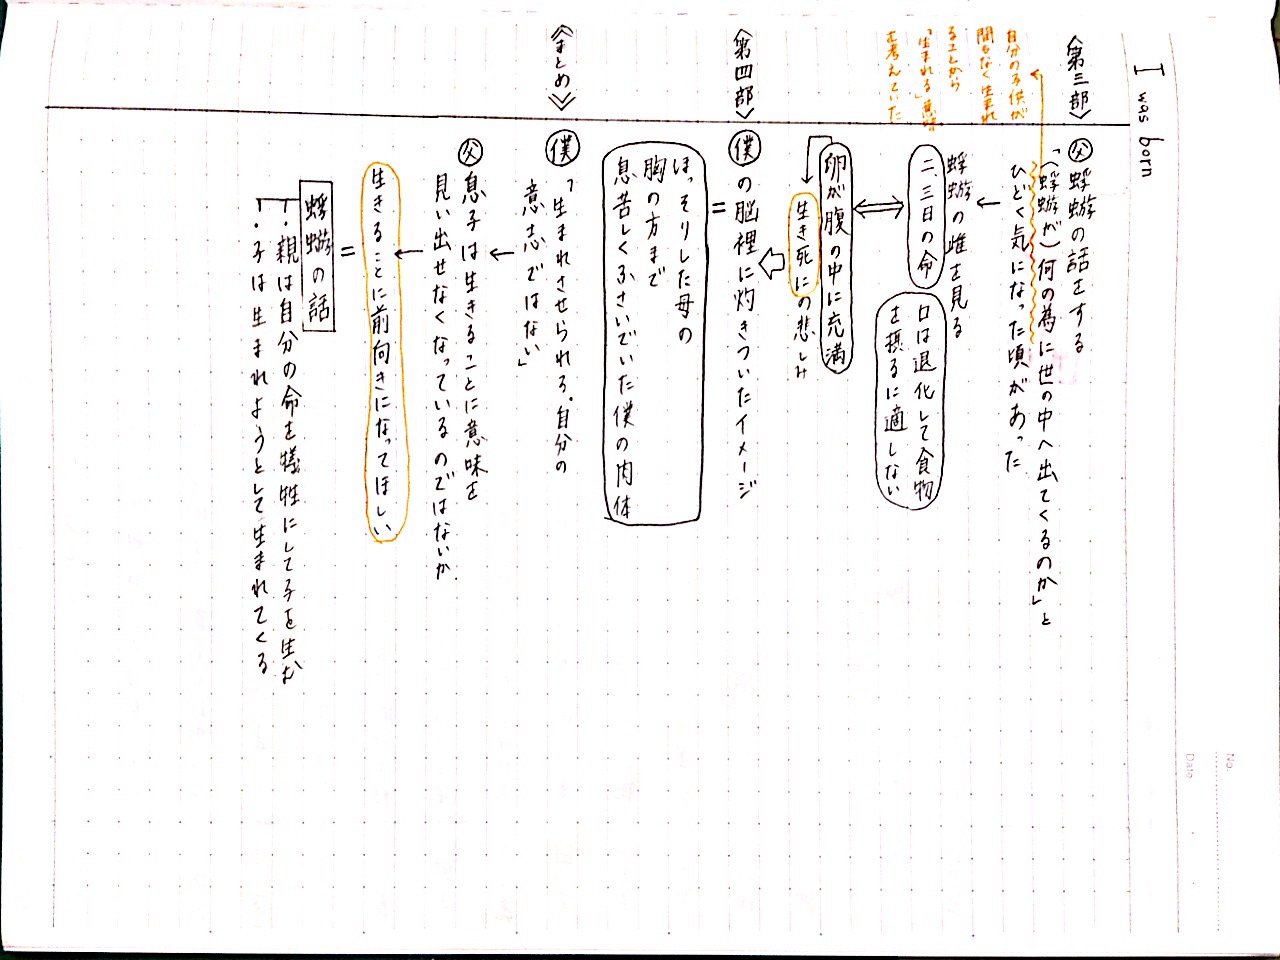 I was born
《第三部》
父 蜉蝣の話をする
「(蜉蝣が)何の為に世の中へ出てくるのか」と
ひどく気になった頃があった
自分の子供が
間もなく生まれ
ることから
「生まれる」意味
を考えていた
蜉蝣の雌を見る
二、三日の命
口は退化して食物
を摂るに適しない
卵が腹の中に充満
生き死にの悲しみ
《第四部》
僕の脳裡に灼きついたイメージ
=
ほっそりした母の
胸の方まで
息苦しくふさいでいた僕の肉体
《まとめ》
僕「生まれさせられる。自分の
意志ではない」
父 息子は生きることに意味を
見い出せなくなっているのではないか
生きることに前向きになってほしい
=
蜉蝣の話
・親は自分の命を犠牲にして子を生む
・子は生まれようとして生まれてくる
No.
Date